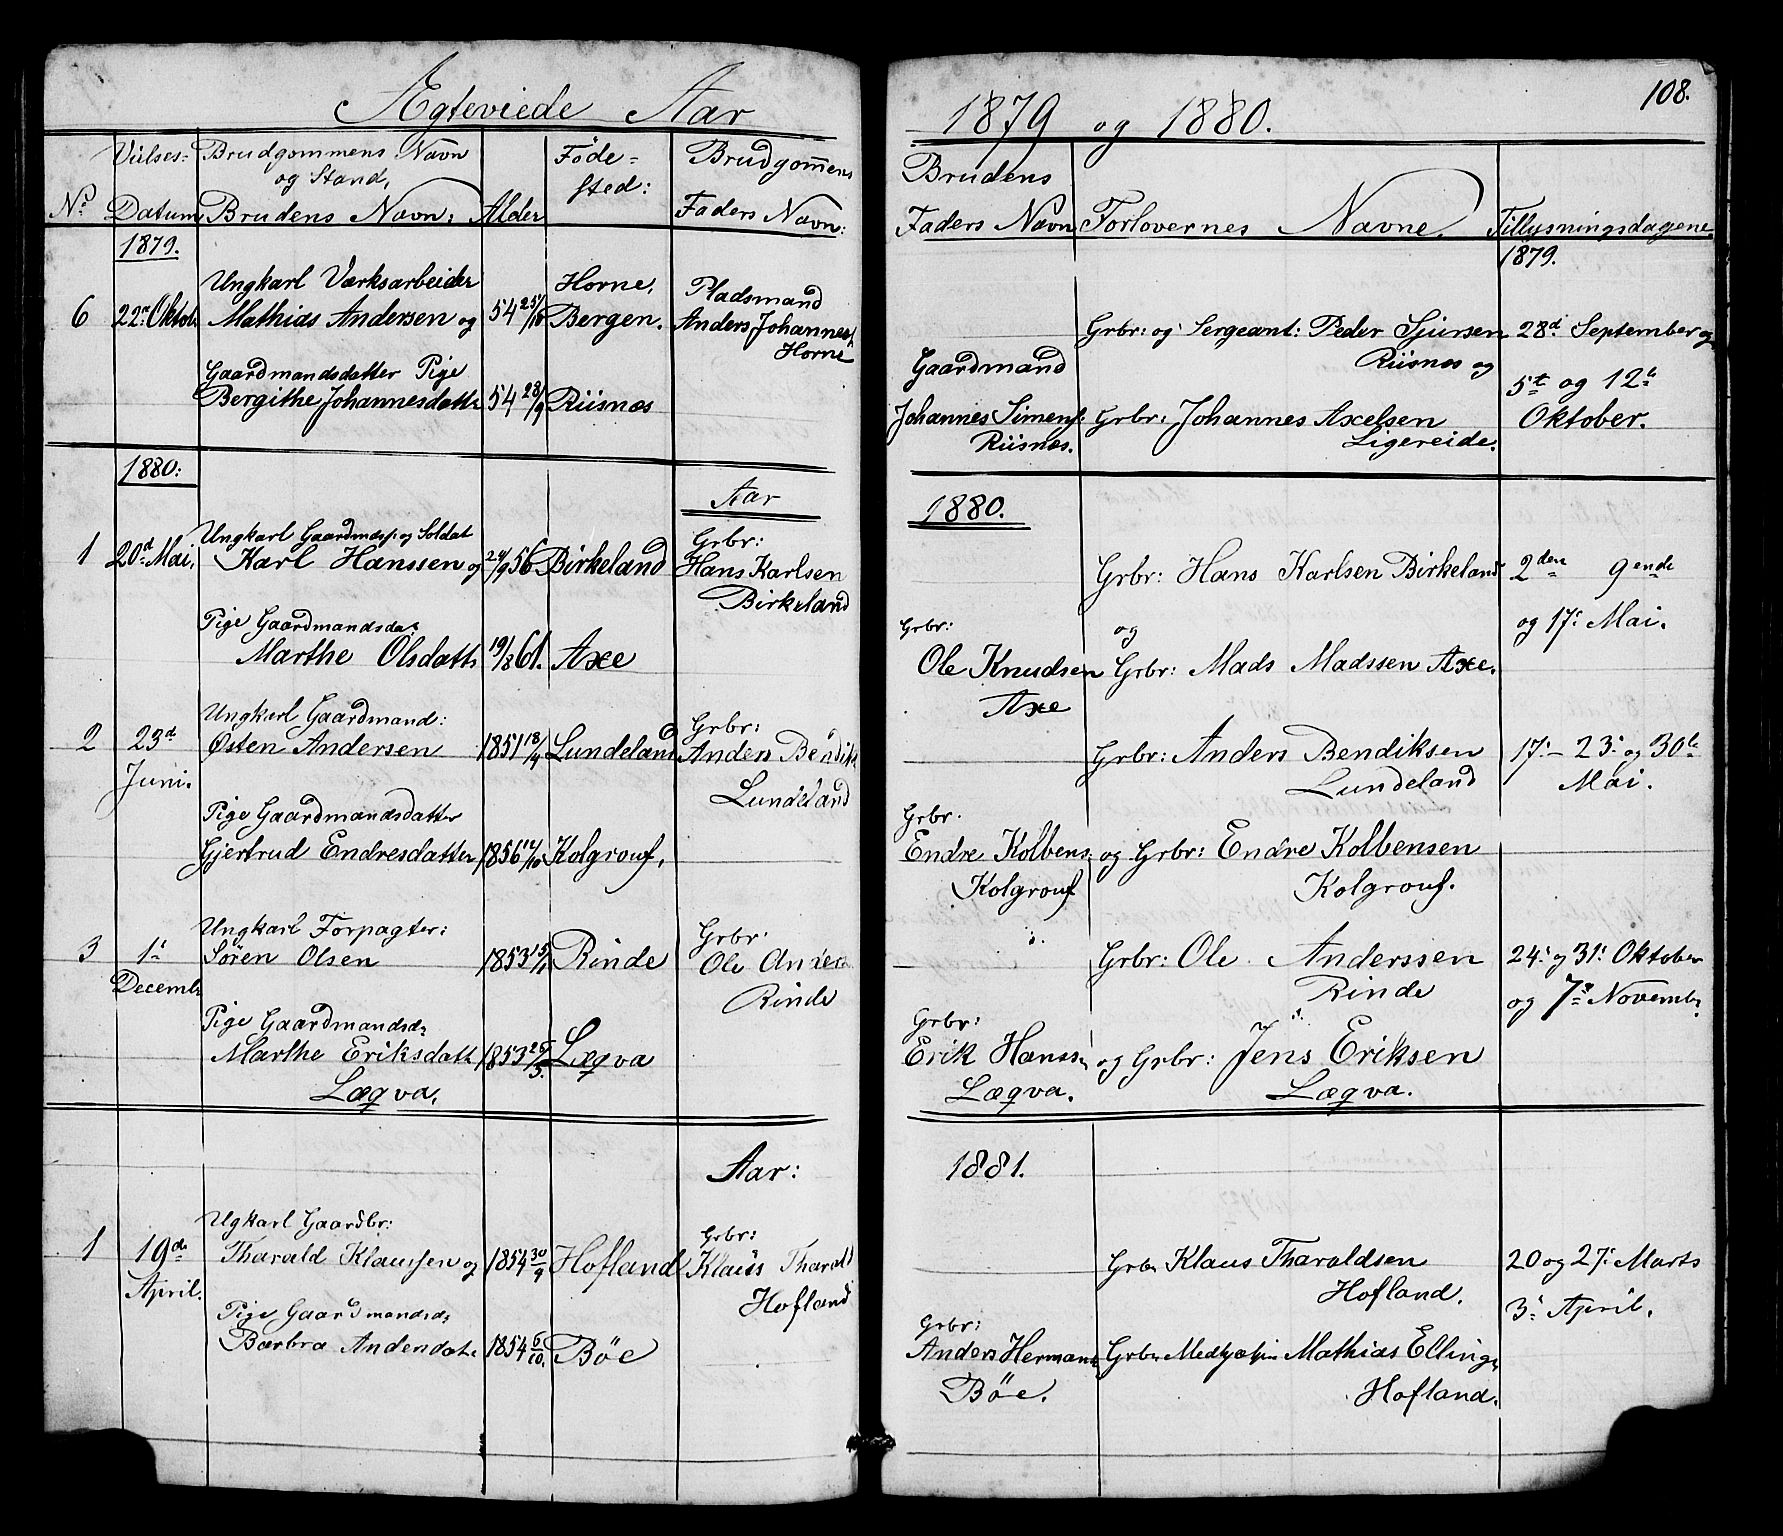 Ægteviede Aar 1879 og 1880. 108.
Vielses- Brudgommens Navn Føde- Brudgom̄ens
og Stand, sted:
No Datum Brudens Navn: Alder Faders Navn:
Brudens
Faders Navn Forlovernes Navne. Tillysningsdagene.
1879. 1879.
Ungkarl Værksarbeider Horne, Pladsmand
6 22de Oktob. Mathias Andersen og 54 25/10 Bergen. Anders Johannes.
Horne
Gaardmandsdatter Pige
Bergithe Johannesdattr 54 28/9 Riisnæs
Grbr: og Sergeant: Peder Sjursen 28d September og
Gaardmand Riisnæs og 5te og 12te
Johannes Simens: Grbr: Johannes Axelsen Oktober.
Riisnæs. Ligereide.
1880: Aar 1880.
Ungkarl Gaardmdsp. og Soldat Grbr:
1 20d Mai, Karl Hanssen og 24/9 56 Birkeland Hans Karlsen
Birkeland
Pige Gaardmandsdat
Marthe Olsdattr 19/8 61. Axe
Grbr: Hans Karlsen Birkeland 2den 9ende
Grbr: og og 17: Mai.
Ole Knudsen Grbr: Mads Madssen Axe.
Axe
Ungkarl Gaardmand: Grbr:
2 23d Østen Andersen 1851 18/4 Lundeland Anders Bendik
Juni. Lundeland
Pige Gaardmandsdatter
Gjertrud Endresdatter 1856 12/10 Kolgrouf,
Grbr: Anders Bendiksen 17: - 23: og 30te
Lundeland Mai.
Grbr.
Endre Kolbens: og Grbr: Endre Kolbensen
Kolgrouf Kolgrouf.
Ungkarl Forpagter: Grbr.
3 1: Søren Olsen 1853 15/1 Rinde Ole Anders
Decembr Rinde
Pige Gaardmandsd:
Marthe Eriksdattr 1853 26/5. Læqva
Læqva,
Grbr: Ole Anderssen 24: og 31: Oktober
Rinde og 7de Novembr.
Grbr:
Erik Hanss: og Grbr: Jens Eriksen
Læqva. Læqva.
Aar: 1881.
Ugkarl Gaardbr: Grbr:
1 19de Tharald Klausen og 1854 30/9 Hofland Klaus Tharald
April. Hofland
Pige Gaardmandsd:
Barbra Andendatr 1854 6/10. Bøe
Grbr Klaus Tharaldsen 20 og 27: Marts
Hofland. 3: April.
Grbr:
Anders Hermans: Grbr Mathias Ellings:
Bøe. Hofland.